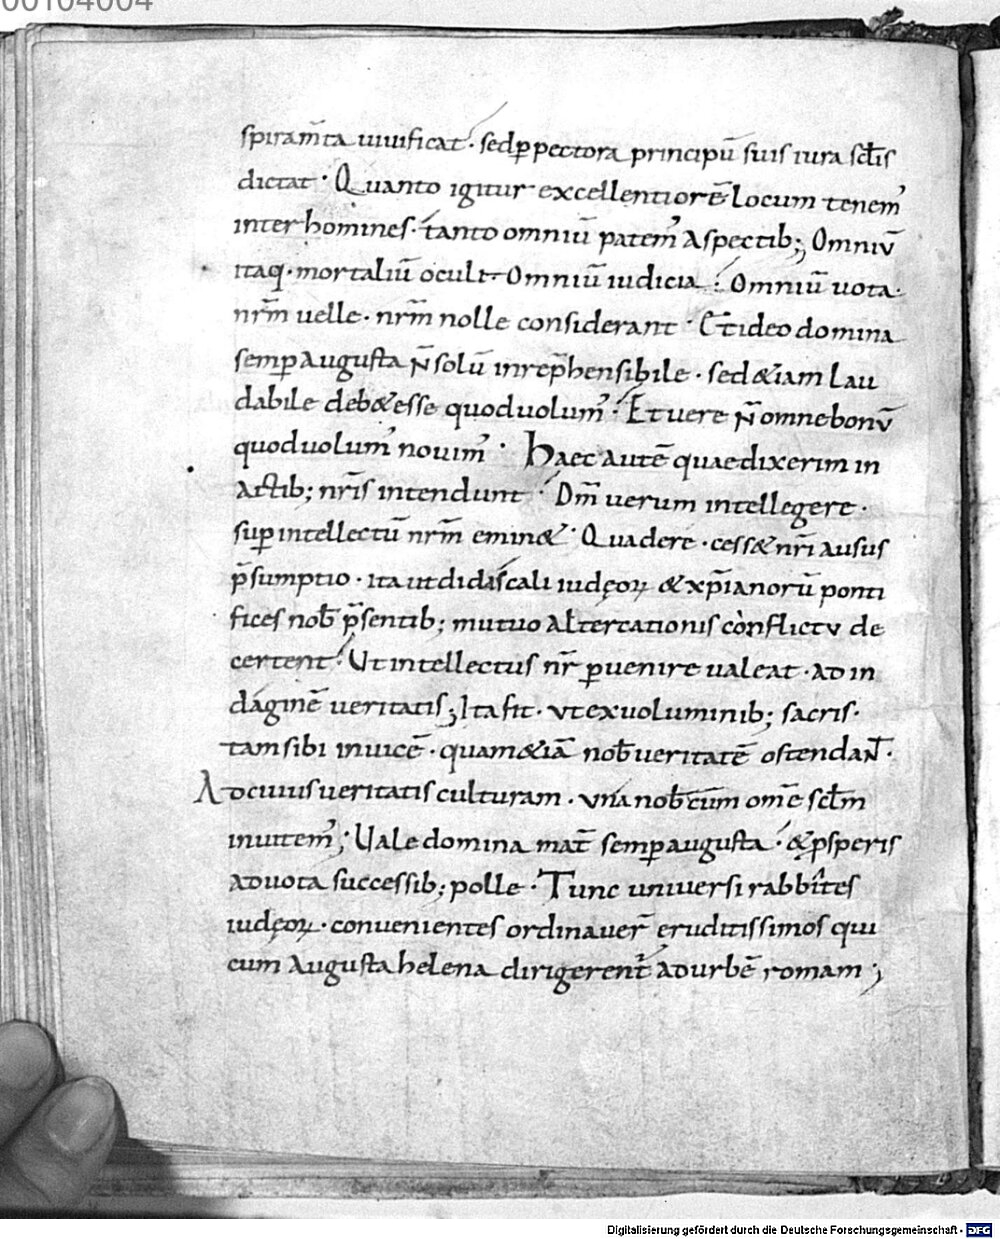 00104004
spiram̅ta uiuificat · sed ꝑ pectora principū suis iura sc̅lis
dictat · Quanto igitur excellentiorē locum tenem᾽
inter homines · tanto omniū patem᾽ aspectib; Omniū
itaq · mortaliū oculi · Omniū iudicia · Omniū uota ·
nr̅m uelle · nr̅m nolle considerant · Et ideo domina
semꝑ augusta n̅ solū inrep̅hensibile · sed &iam lau
dabile deb& esse quod uolum᾽ · Et uere n̅ omne bonū
quod uolum᾽ nouim᾽ · Haec autē quae dixerim in
actib; nr̅is intendunt · Dm̅ uerum intellegere ·
suꝑ intellectū nr̅m emin& · Qua de re · cess& nr̅i ausus
p̅sumptio · ita ut didascali iudęoꝝ & xp̅ianorū ponti
fices nob̅ p̅sentib; mutuo altercationis conflictu de
certent · Ut intellectus nr̅ ꝑuenire ualeat · ad in
daginē ueritatis; Ita fit · ut ex uoluminib; sacris ·
tam sibi inuicē · quam &iā nob̅ ueritatē ostendan̅t ·
Ad cuius ueritatis culturam · una nob̅cum om̅e sc̅lm
inuitem᾽; Uale domina mat̅ semꝑ augusta · & ꝓsperis
ad uota successib; polle · Tunc uniuersi rabbites
iudęoꝝ · conuenientes ordinauer̅ eruditissimos qui
cum augusta helena dirigerent̅ ad urbē romam;
Digitalisierung gefördert durch die Deutsche Forschungsgemeinschaft - DFG